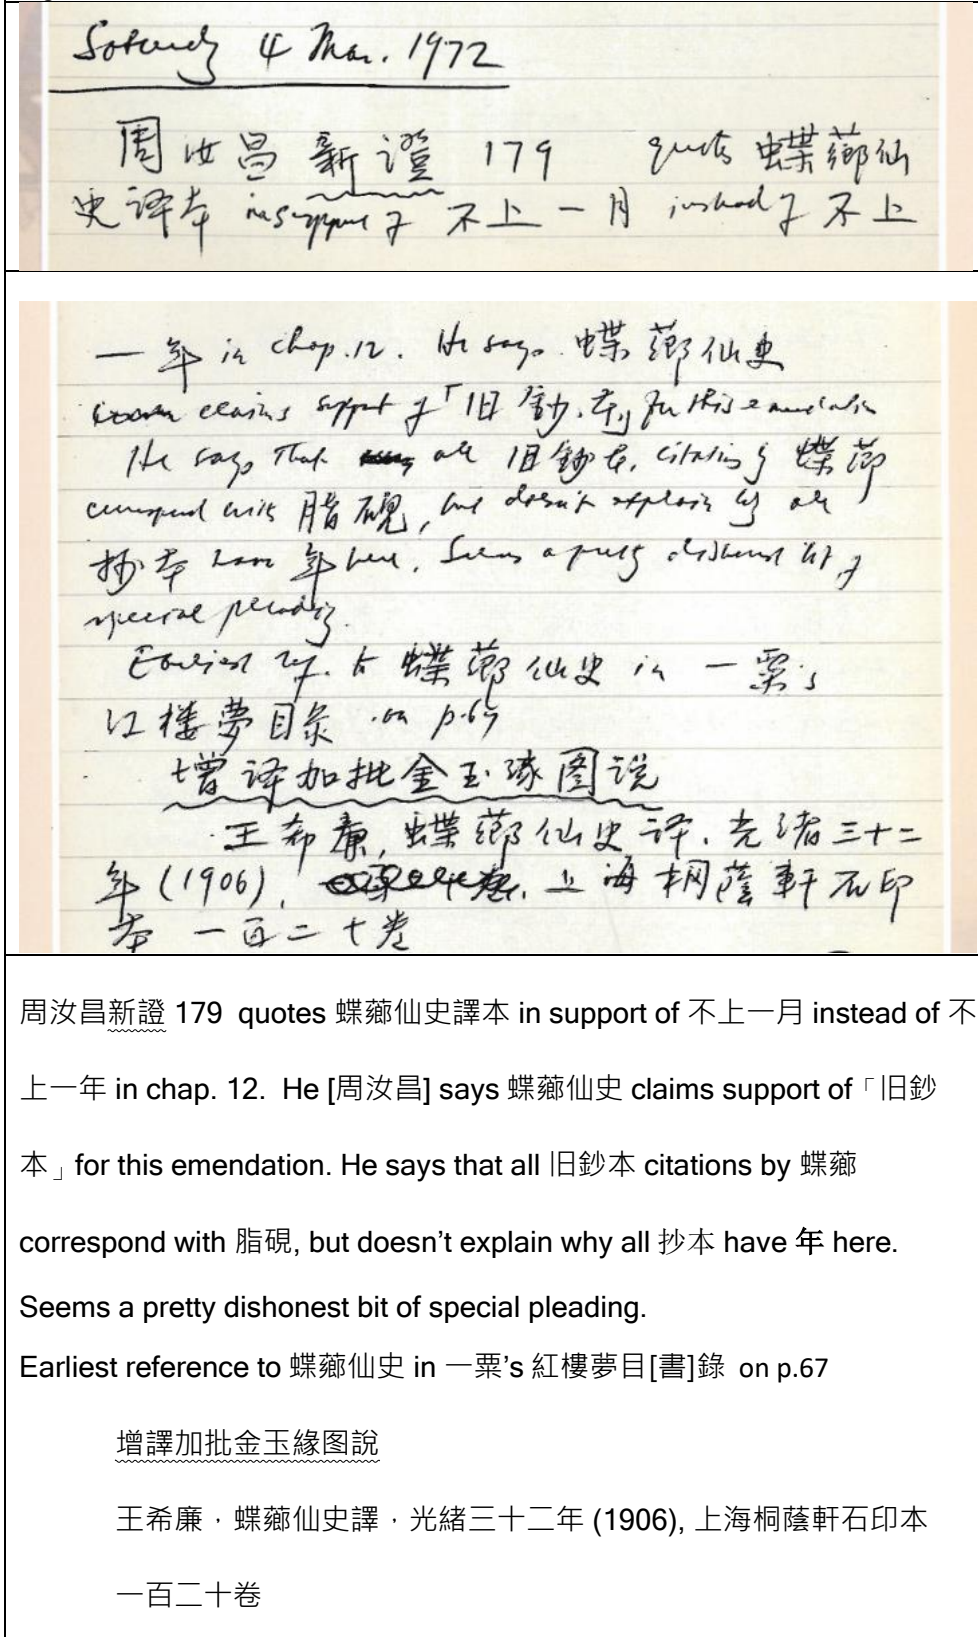 Saturday 4 Mar. 1972
周汝昌 新證 179 quotes 蝶薌仙
史译本 in support of 不上一月 instead of 不上
一年 in chap. 12. He says 蝶薌仙史
claims support of 「旧鈔本」 for this emendation
He says that all 旧鈔本 citations by 蝶薌
correspond with 脂硯, but doesn't explain why all
抄本 have 年 here. Seems a pretty dishonest bit of
special pleading.
Earliest ref. to 蝶薌仙史 in 一粟's
红楼夢目录 on p.67
增译加批金玉缘图说
王希廉, 蝶薌仙史译, 光绪三十二
年 (1906), 上海桐蔭軒石印
本 一百二十卷
周汝昌新證 179 quotes 蝶薌仙史譯本 in support of 不上一月 instead of 不
上一年 in chap. 12. He [周汝昌] says 蝶薌仙史 claims support of「旧鈔
本」for this emendation. He says that all 旧鈔本 citations by 蝶薌
correspond with 脂硯, but doesn’t explain why all 抄本 have 年 here.
Seems a pretty dishonest bit of special pleading.
Earliest reference to 蝶薌仙史 in 一粟’s 紅樓夢目[書]錄 on p.67
增譯加批金玉緣图說
王希廉，蝶薌仙史譯，光緒三十二年 (1906), 上海桐蔭軒石印本
一百二十卷